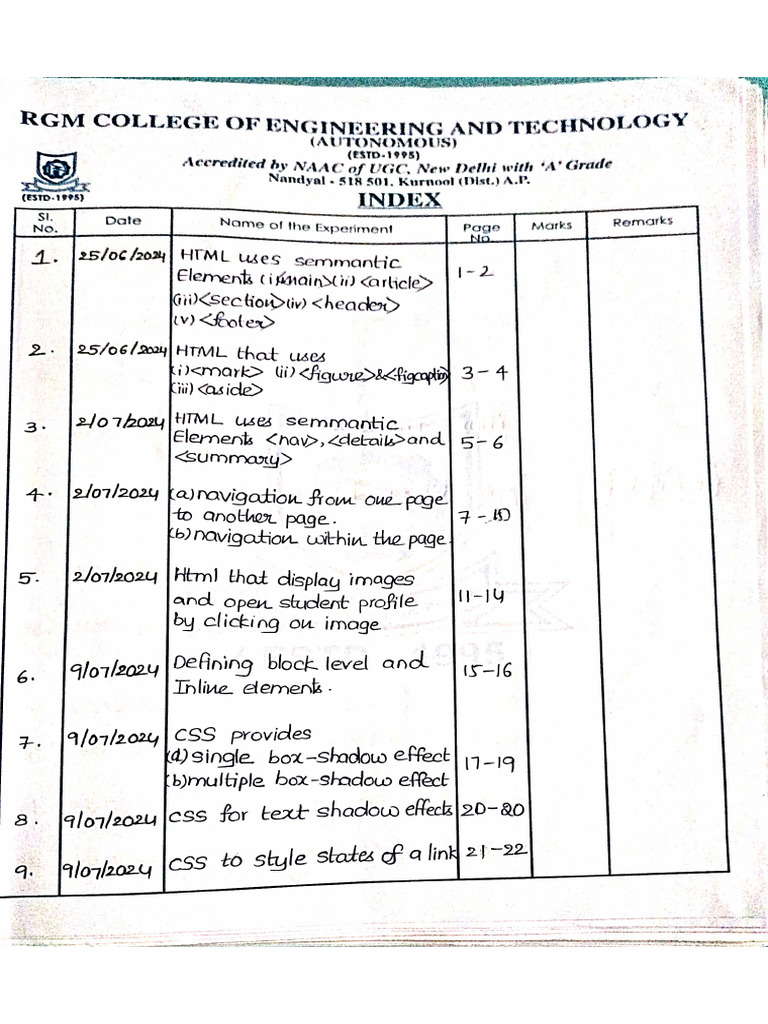 RGM COLLEGE OF ENGINEERING AND TECHNOLOGY
(AUTONOMOUS)
(ESTD-1995)
Accredited by NAAC of UGC, New Delhi with 'A' Grade
Nandyal - 518 501. Kurnool (Dist.) A.P.
(ESTD-1995)
INDEX
Sl. No. Date Name of the Experiment Page No. Marks Remarks
1. 25/06/2024 HTML uses semmantic
Elements (i)<main>(ii) <article> 1-2
(iii)<section>(iv) <header>
(v) <footer>
2. 25/06/2024 HTML that uses
(i)<mark> (ii) <figure>&<figcaption> 3-4
(iii) <aside>
3. 2/07/2024 HTML uses semmantic
Elements <nav>,<details>and 5-6
<summary>
4. 2/07/2024 (a)navigation from one page
to another page. 7-10
(b)navigation within the page.
5. 2/07/2024 Html that display images
and open student profile 11-14
by clicking on image
6. 9/07/2024 Defining block level and 15-16
Inline elements.
7. 9/07/2024 CSS provides
(a) single box-shadow effect 17-19
(b) multiple box-shadow effect
8. 9/07/2024 CSS for text shadow effects 20-20
9. 9/07/2024 CSS to style states of a link 21-22